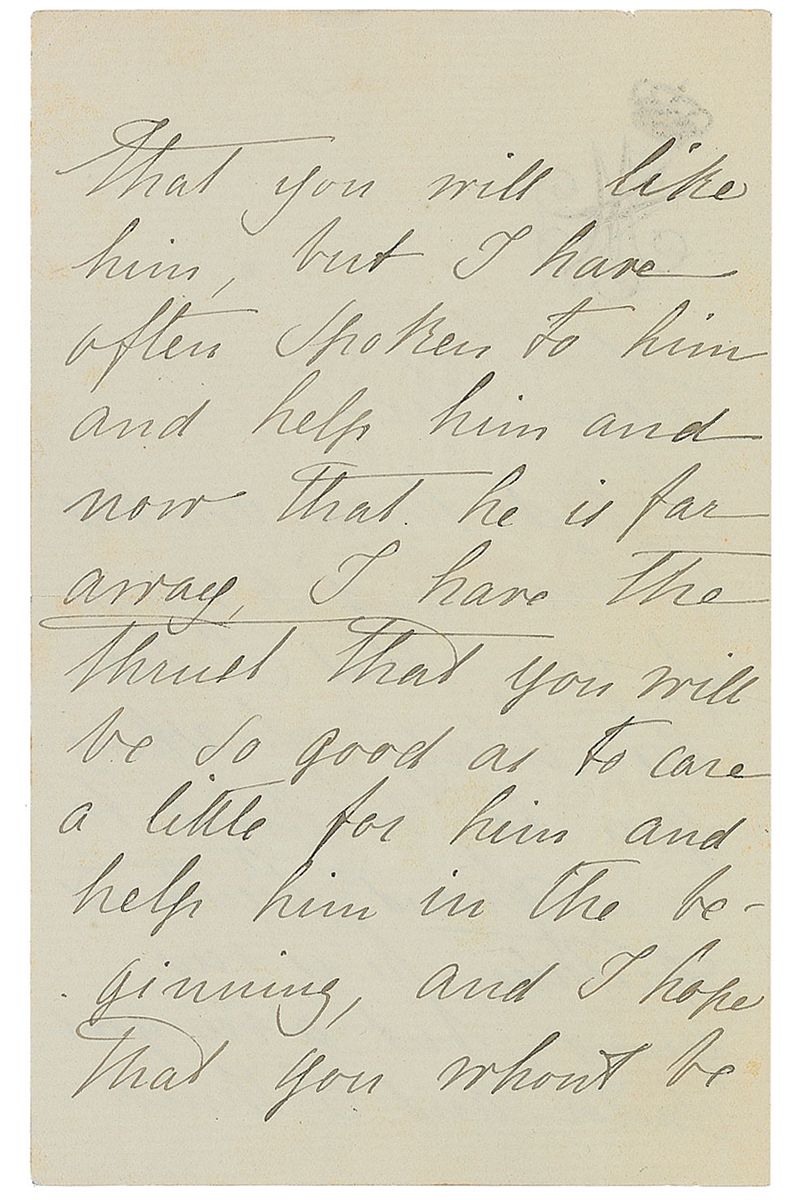 that you will like
him, but I have
often spoken to him
and help him and
now that he is far
away, I have the
thrust that you will
be so good as to care
a little for him and
help him in the be-
ginning, and I hope
that you whont be